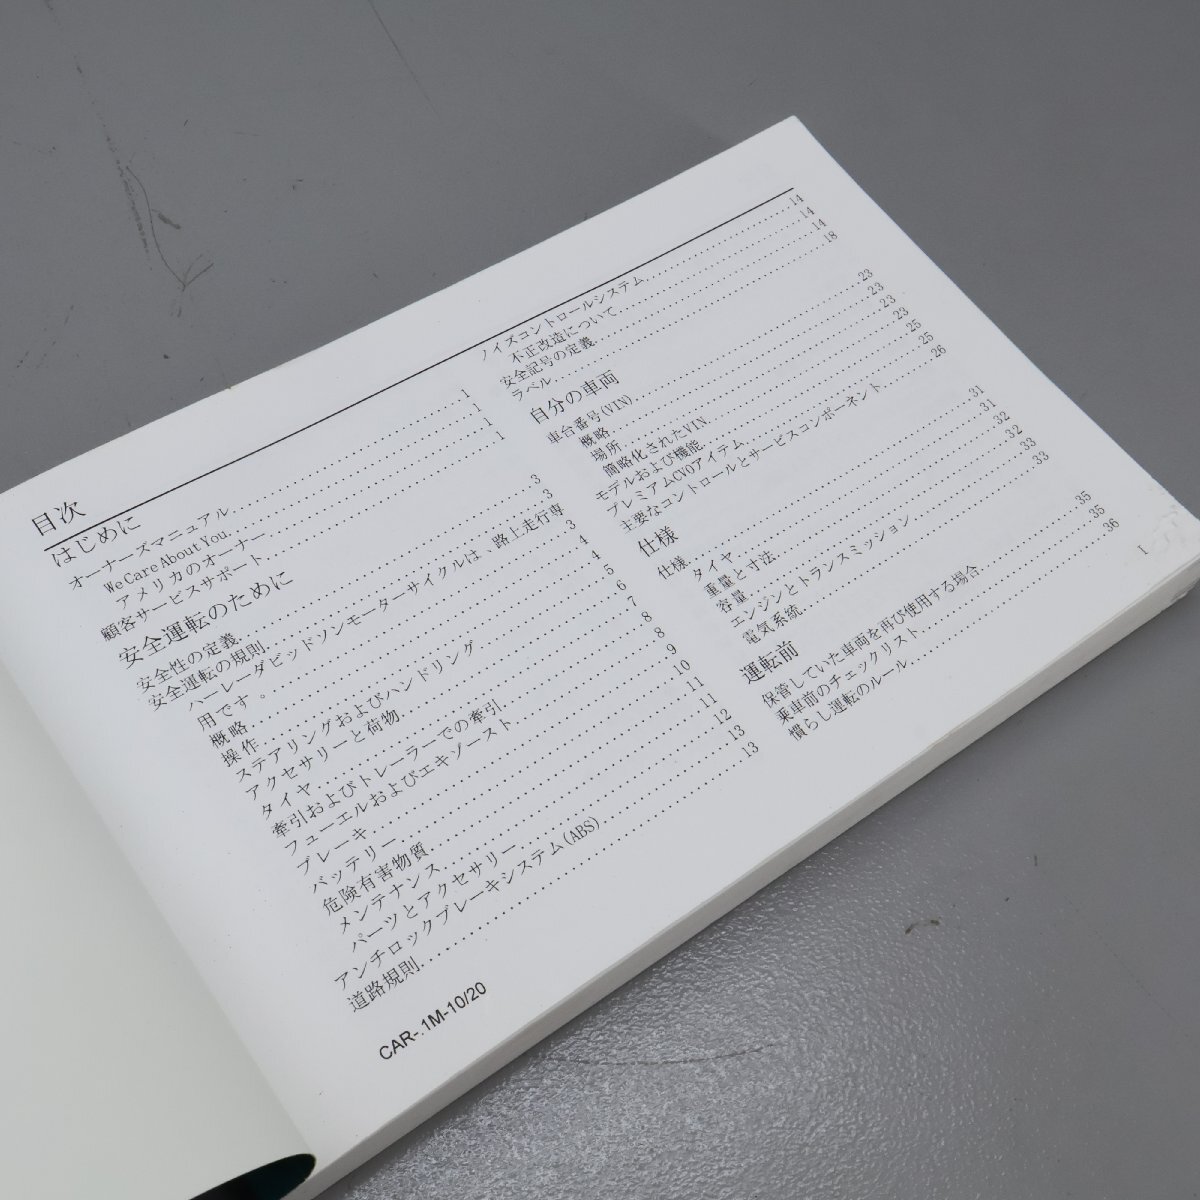 目次
はじめに
オーナーズマニュアル..........1
We Care About You..........1
アメリカのオーナー..........1
顧客サービスサポート..........1
安全運転のために
安全性の定義..........3
安全運転の規則..........3
ハーレーダビッドソンモーターサイクルは 路上走行専
用です。..........3
概略..........4
操作..........4
ステアリングおよびハンドリング..........5
アクセサリーと荷物..........6
タイヤ..........7
牽引およびトレーラーでの牽引..........8
フューエルおよびエキゾースト..........8
ブレーキ..........9
バッテリー..........10
危険有害物質..........11
メンテナンス..........11
パーツとアクセサリー..........12
アンチロックブレーキシステム(ABS)..........13
道路規則..........13
ノイズコントロールシステム..........14
不正改造について..........14
安全記号の定義..........14
ラベル..........18
自分の車両
車台番号(VIN)..........23
概略..........23
場所..........23
簡略化されたVIN..........23
モデルおよび機能..........25
プレミアムCVOアイテム..........25
主要なコントロールとサービスコンポーネント..........26
仕様
仕様..........31
タイヤ..........31
重量と寸法..........32
容量..........32
エンジンとトランスミッション..........33
電気系統..........33
運転前
保管していた車両を再び使用する場合..........35
乗車前のチェックリスト..........35
慣らし運転のルール..........36
CAR-.1M-10/20
1